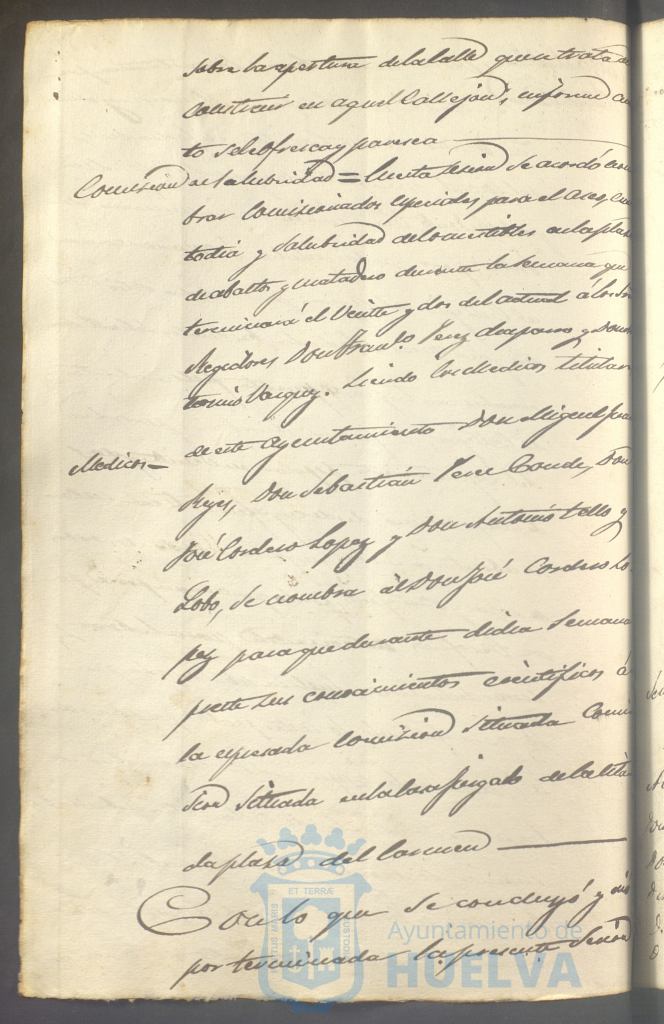 sobre la apertura de la Calle que se trata de
construir en aquel Callejon, informe cu
to se le ofresca y paresca
Comision de Salubridad = En esta sesion se acordó nom
brar Comisionados especiales para el aseo, cus
todia y Salubridad de Comestibles en la plasa
de abastos y matadero durante la semana que
terminará el Veinte y dos del actual á los Sres
Regidores Don Franco. Perez y Don
tonio Vazquez. Siendo los Medicos titulares
Medicos= de este Ayuntamiento Don Miguel
Reyes, Don Sebastián Perez Conde, Don
José Cordero Lopez y Don Antonio Tello y
Lobo, se nombra al Don José Cordero Lo
pez para que durante dicha Semana
preste sus conocimientos cientificos á
la espresada Comision situada Comi
sion situada en la Casa fijada de la cita
da plasa del Carmen
Con lo que se concluyó y dió
por terminada la presente Sesion
ET TERRÆ
PORTUS MARIS
CUSTODIA
Ayuntamiento de
HUELVA